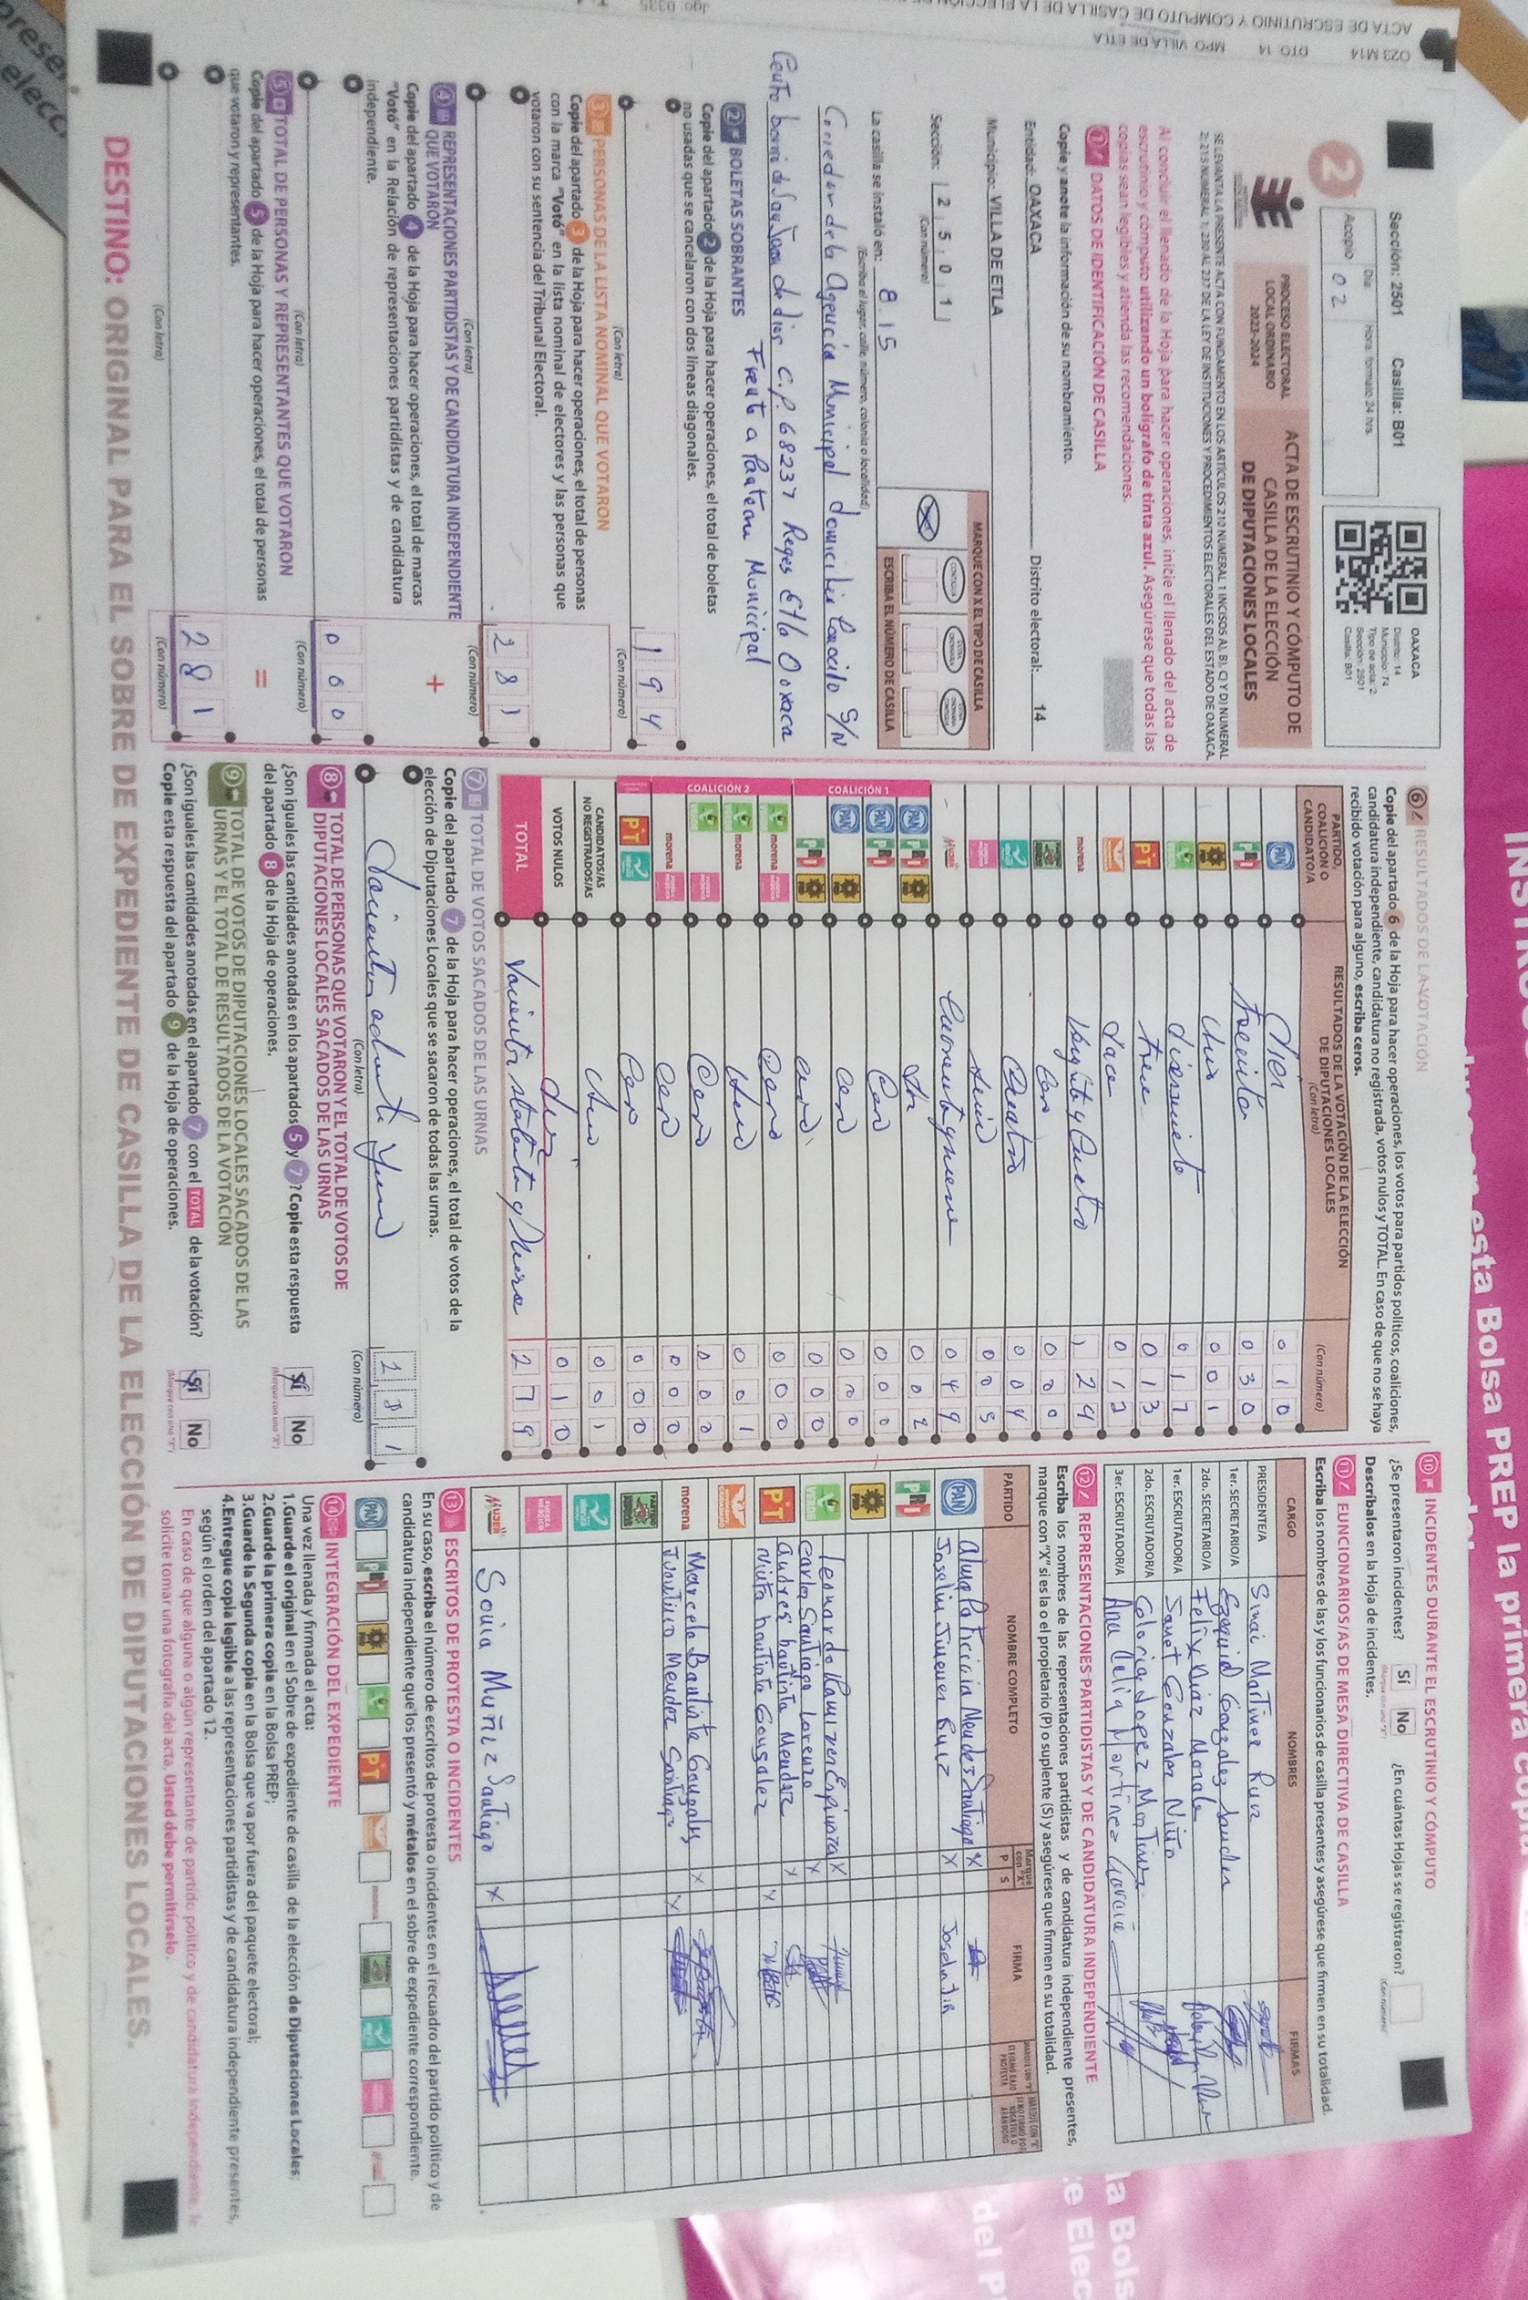 Sección: 2501 Casilla: B01
2
Día Hora: formato 24 hrs.
Acopio 02
OAXACA
Distrito: 14
Municipio: 74
Tipo de acta: 2
Sección: 2501
Casilla: B01
PROCESO ELECTORAL
LOCAL ORDINARIO
2023-2024
ACTA DE ESCRUTINIO Y CÓMPUTO DE
CASILLA DE LA ELECCIÓN
DE DIPUTACIONES LOCALES
SE LEVANTA LA PRESENTE ACTA CON FUNDAMENTO EN LOS ARTÍCULOS 210 NUMERAL 1 INCISOS A), B), C) Y D) NUMERAL
2; 215 NUMERAL 1; 230 AL 237 DE LA LEY DE INSTITUCIONES Y PROCEDIMIENTOS ELECTORALES DEL ESTADO DE OAXACA.
Al concluir el llenado de la Hoja para hacer operaciones, inicie el llenado del acta de
escrutinio y cómputo utilizando un bolígrafo de tinta azul. Asegúrese que todas las
copias sean legibles y atienda las recomendaciones.
1 DATOS DE IDENTIFICACIÓN DE CASILLA
Copie y anote la información de su nombramiento.
Entidad: OAXACA Distrito electoral: 14
Municipio: VILLA DE ETLA
Sección: 2501
(Con número)
MARQUE CON X EL TIPO DE CASILLA
ESCRIBA EL NÚMERO DE CASILLA
La casilla se instaló en: 8.15
(Escriba el lugar, calle, número, colonia o localidad)
Corredor de la Agencia Municipal domicilio Conocido S/N
Centro barrio de San Juan de dios C.P. 68237 Reyes Etla Oaxaca
Frente a Panteon Municipal
2 BOLETAS SOBRANTES
Copie del apartado 2 de la Hoja para hacer operaciones, el total de boletas
no usadas que se cancelaron con dos líneas diagonales.
194
(Con letra) (Con número)
3 PERSONAS DE LA LISTA NOMINAL QUE VOTARON
Copie del apartado 3 de la Hoja para hacer operaciones, el total de personas
con la marca "Votó" en la lista nominal de electores y las personas que
votaron con su sentencia del Tribunal Electoral.
281
(Con letra) (Con número)
4 REPRESENTACIONES PARTIDISTAS Y DE CANDIDATURA INDEPENDIENTE
QUE VOTARON +
Copie del apartado 4 de la Hoja para hacer operaciones, el total de marcas
"Votó" en la Relación de representaciones partidistas y de candidatura
independiente.
000
(Con letra) (Con número)
5 TOTAL DE PERSONAS Y REPRESENTANTES QUE VOTARON =
Copie del apartado 5 de la Hoja para hacer operaciones, el total de personas
que votaron y representantes.
281
(Con letra) (Con número)
6 RESULTADOS DE LA VOTACIÓN
Copie del apartado 6 de la Hoja para hacer operaciones, los votos para partidos políticos, coaliciones,
candidatura independiente, candidatura no registrada, votos nulos y TOTAL. En caso de que no se haya
recibido votación para alguno, escriba ceros.
PARTIDO, COALICIÓN O CANDIDATO/A
RESULTADOS DE LA VOTACIÓN DE LA ELECCIÓN DE DIPUTACIONES LOCALES
(Con letra) (Con número)
PAN Diez 010
PRI treinta 030
PRD Uno 001
VERDE diesisiete 017
PT trece 013
Doce 012
morena Veintiy Cuatro 124
Cero 000
Cuatro 004
Cinco 005
MUJER Cuarenta y nueve 049
PAN PRI PRD 002
COALICIÓN 1
PAN PRI Cero 000
PAN PRD Cero 000
PRI PRD Cero 000
COALICIÓN 2
VERDE morena Cero 000
VERDE morena Uno 001
VERDE Cero 000
morena Cero 000
PT Cero 000
CANDIDATOS/AS
NO REGISTRADOS/AS Uno 001
VOTOS NULOS Diez 010
TOTAL Docientos setenta y Nueve 279
7 TOTAL DE VOTOS SACADOS DE LAS URNAS
Copie del apartado 7 de la Hoja para hacer operaciones, el total de votos de la
elección de Diputaciones Locales que se sacaron de todas las urnas.
Docientos ochenta y uno 281
(Con letra) (Con número)
8 TOTAL DE PERSONAS QUE VOTARON Y EL TOTAL DE VOTOS DE
DIPUTACIONES LOCALES SACADOS DE LAS URNAS
¿Son iguales las cantidades anotadas en los apartados 5 y 7? Copie esta respuesta
del apartado 8 de la Hoja de operaciones.
Sí No
9 TOTAL DE VOTOS DE DIPUTACIONES LOCALES SACADOS DE LAS
URNAS Y EL TOTAL DE RESULTADOS DE LA VOTACIÓN
¿Son iguales las cantidades anotadas en el apartado 7 con el TOTAL de la votación?
Copie esta respuesta del apartado 9 de la Hoja de operaciones.
Sí No
10 INCIDENTES DURANTE EL ESCRUTINIO Y CÓMPUTO
¿Se presentaron incidentes? Sí No ¿En cuántas Hojas se registraron?
Descríbalos en la Hoja de incidentes.
11 FUNCIONARIOS/AS DE MESA DIRECTIVA DE CASILLA
Escriba los nombres de las y los funcionarios de casilla presentes y asegúrese que firmen en su totalidad.
CARGO NOMBRES FIRMAS
PRESIDENTE/A Sinai Martinez Ruiz
1er. SECRETARIO/A Ezequiel Gonzales Sanchez
2do. SECRETARIO/A Felix Diaz Morale
1er. ESCRUTADOR/A Sanet Gonzalez Niño
2do. ESCRUTADOR/A Gloria Lopez Martinez
3er. ESCRUTADOR/A Ana Delia Martinez Garcia
12 REPRESENTACIONES PARTIDISTAS Y DE CANDIDATURA INDEPENDIENTE
Escriba los nombres de las representaciones partidistas y de candidatura independiente presentes,
marque con "X" si es la o el propietario (P) o suplente (S) y asegúrese que firmen en su totalidad.
PARTIDO NOMBRE COMPLETO Marque con "X" P S FIRMA
PAN Aluya Patricia Mendez Santiago X
Joselin Jimenez Ruiz X
PRI
PRD
VERDE Leonardo Ramirez Espinoza X
Carlos Santiago Lorenzo X
PT Andres bautista Mendez X
Nivita bautista Gonzalez X
morena Marcelo Bautista Gonzales X
Justino Mendez Santiago X
MUJER Sonia Muñiz Santiago X
13 ESCRITOS DE PROTESTA O INCIDENTES
En su caso, escriba el número de escritos de protesta o incidentes en el recuadro del partido político y de
candidatura independiente que los presentó y métalos en el sobre de expediente correspondiente.
14 INTEGRACIÓN DEL EXPEDIENTE
Una vez llenada y firmada el acta:
1.Guarde el original en el Sobre de expediente de casilla de la elección de Diputaciones Locales;
2.Guarde la primera copia en la Bolsa PREP;
3.Guarde la Segunda copia en la Bolsa que va por fuera del paquete electoral;
4.Entregue copia legible a las representaciones partidistas y de candidatura independiente presentes,
según el orden del apartado 12.
En caso de que alguna o algún representante de partido político y de candidatura independiente, le
solicite tomar una fotografía del acta, Usted debe permitírselo.
DESTINO: ORIGINAL PARA EL SOBRE DE EXPEDIENTE DE CASILLA DE LA ELECCIÓN DE DIPUTACIONES LOCALES.
023 M14 DTO 14 MPO VILLA DE ETLA
ACTA DE ESCRUTINIO Y COMPUTO DE CASILLA DE LA ELECCIÓN
esta Bolsa PREP la primera copia